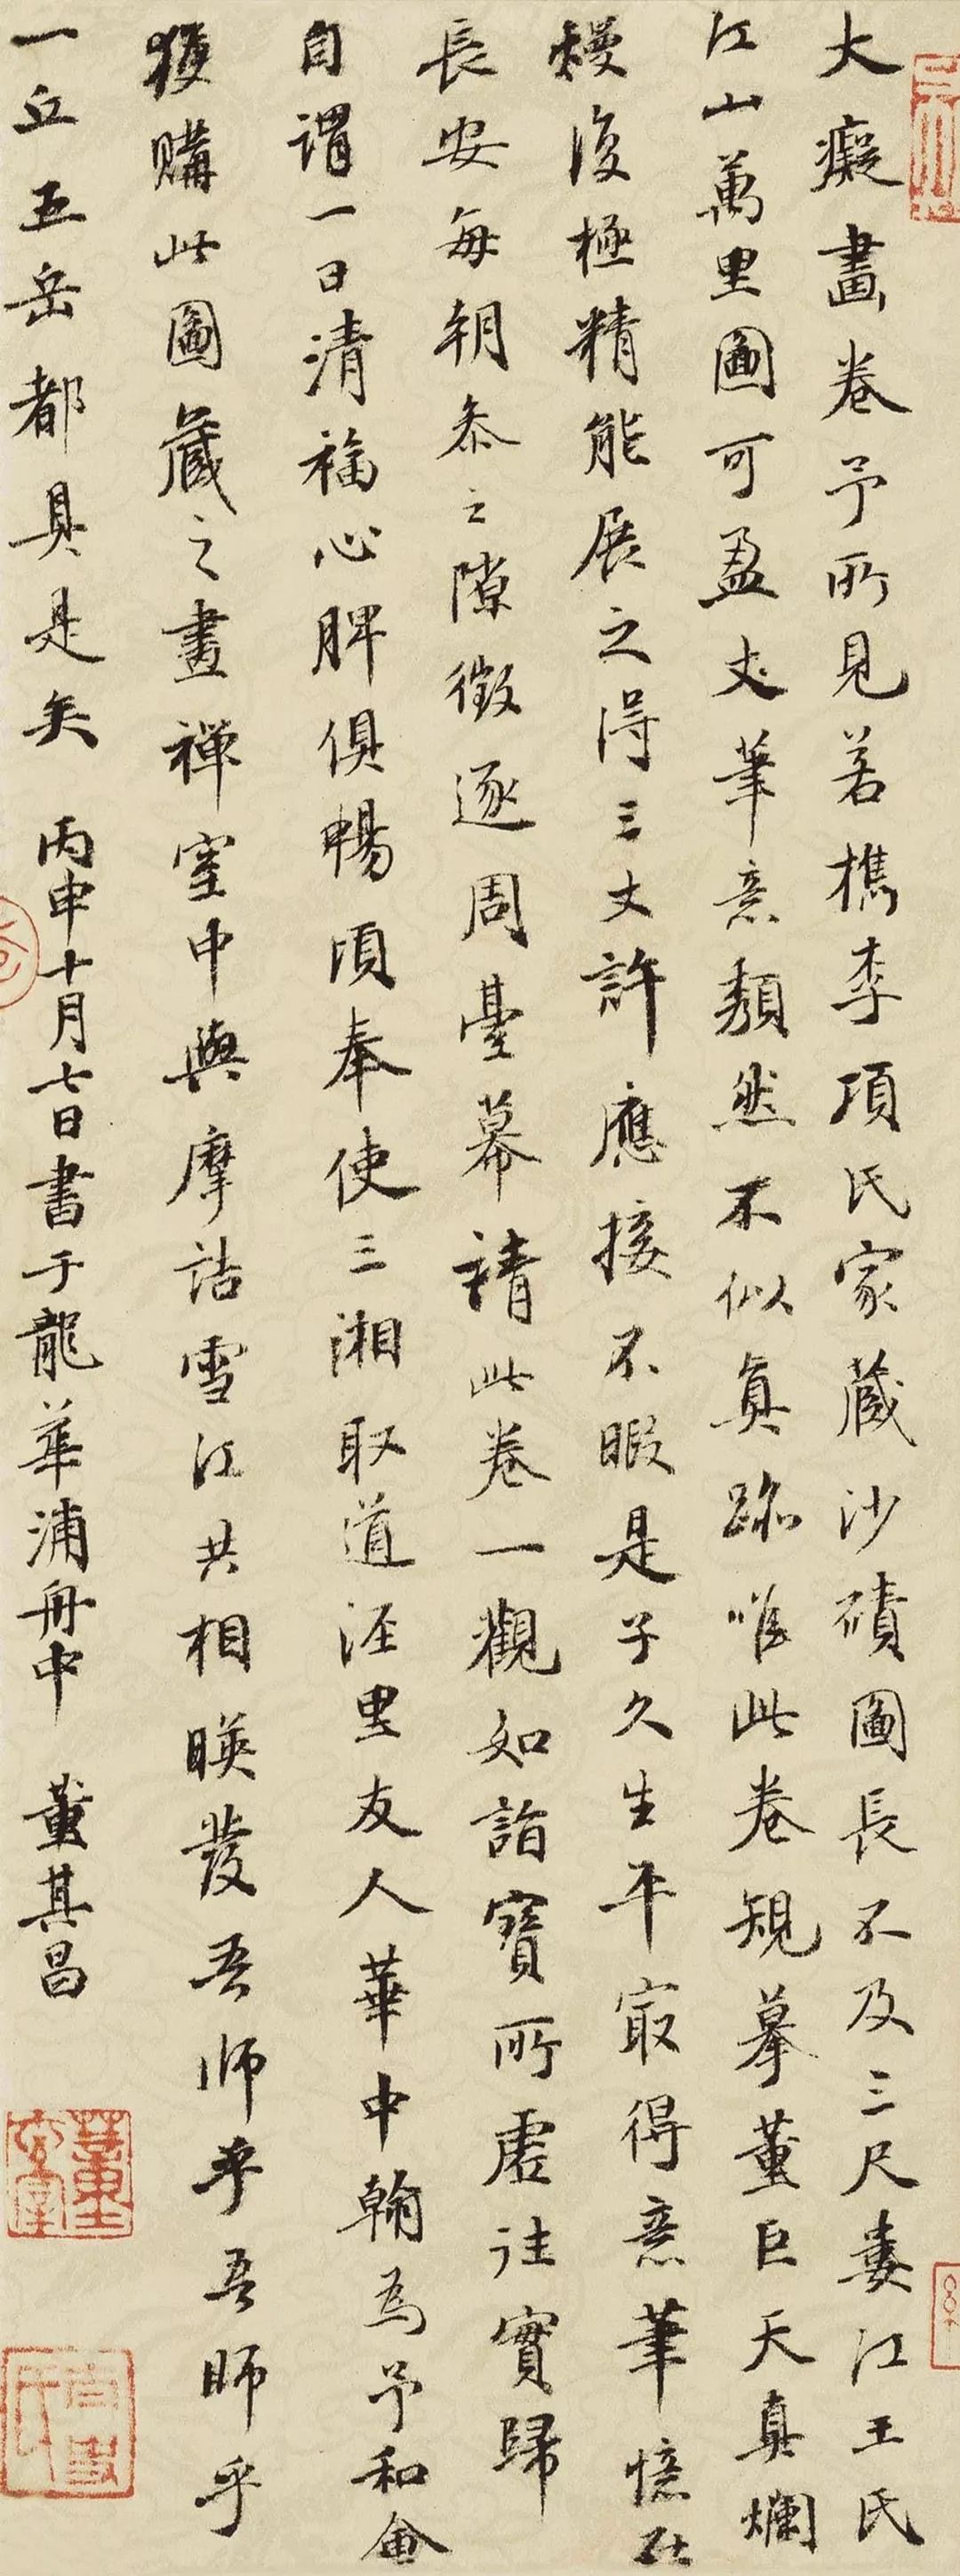 大癡畫卷予所見若檇李項氏家藏沙磧圖長不及三尺婁江王氏
江山萬里圖可盈丈筆意頹然不似真跡唯此卷規摹董巨天真爛
熳復極精能展之得三丈許應接不暇是子久生平冣得意筆憶在
長安每朝叅之隙徵逐周臺幕請此卷一觀如詣寶所虛往實歸
自謂一日清福心脾俱暢頃奉使三湘取道涇里友人華中翰為予和會
獲購此圖藏之畫禪室中與摩詰雪江共相暎發吾師乎吾師乎
一丘五岳都具是矣 丙申十月七日書于龍華浦舟中 董其昌